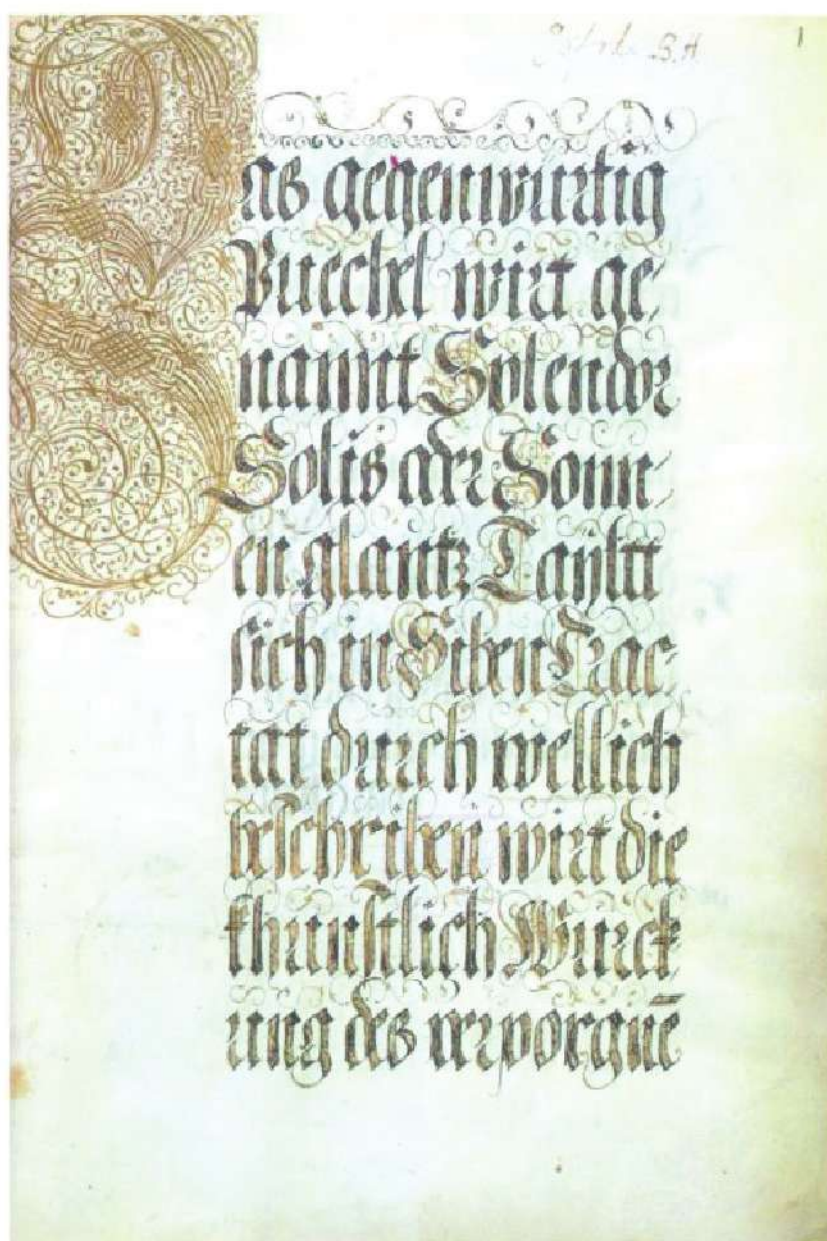 B. H. 1
Das gegenwurtig
Puechel wirt ge⸗
nannt Splendor
Solis ader Sonn⸗
en glantz Taÿltt
sich in Siben Trac⸗
tat durch wellich
beschriben wirt die
khunstlich Wurck⸗
ung des verporgnē